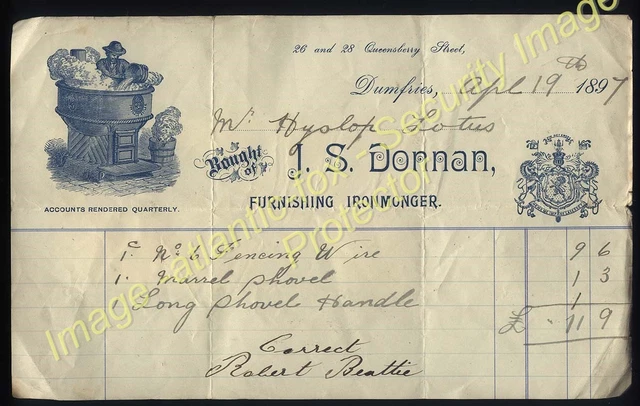 26 and 28 Queensberry Street,
Dumfries, Apl 19th 1897
Mr Hyslop Lotus
Bought of J. S. Donnan,
FURNISHING IRONMONGER.
ACCOUNTS RENDERED QUARTERLY.
1 c No 6 Fencing Wire 9 6
1. Murrel Shovel 1 3
Long Shovel Handle 1
£ - 11 9
Correct
Robert Beattie
Image: atlantic-fox - Security Image Protector